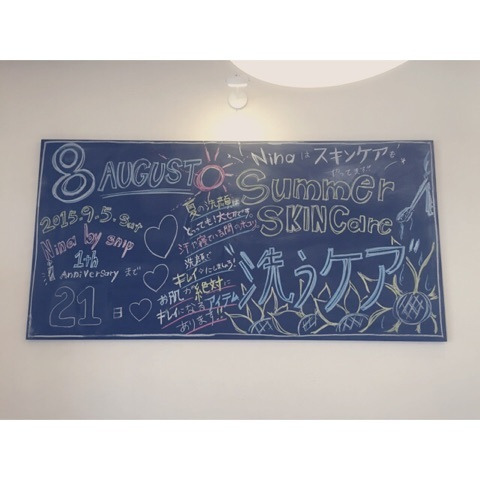 8 AUGUST
2015.9.5. Sat
Nina by snip
1th
Anniversary まで
21日
夏の洗顔は
とっても大切です
洗顔で
キレイにしましょう!
お肌が絶対に
キレイになるアイテム
あります!!
Nina はスキンケアを
Summer
SKINCare
洗うケア